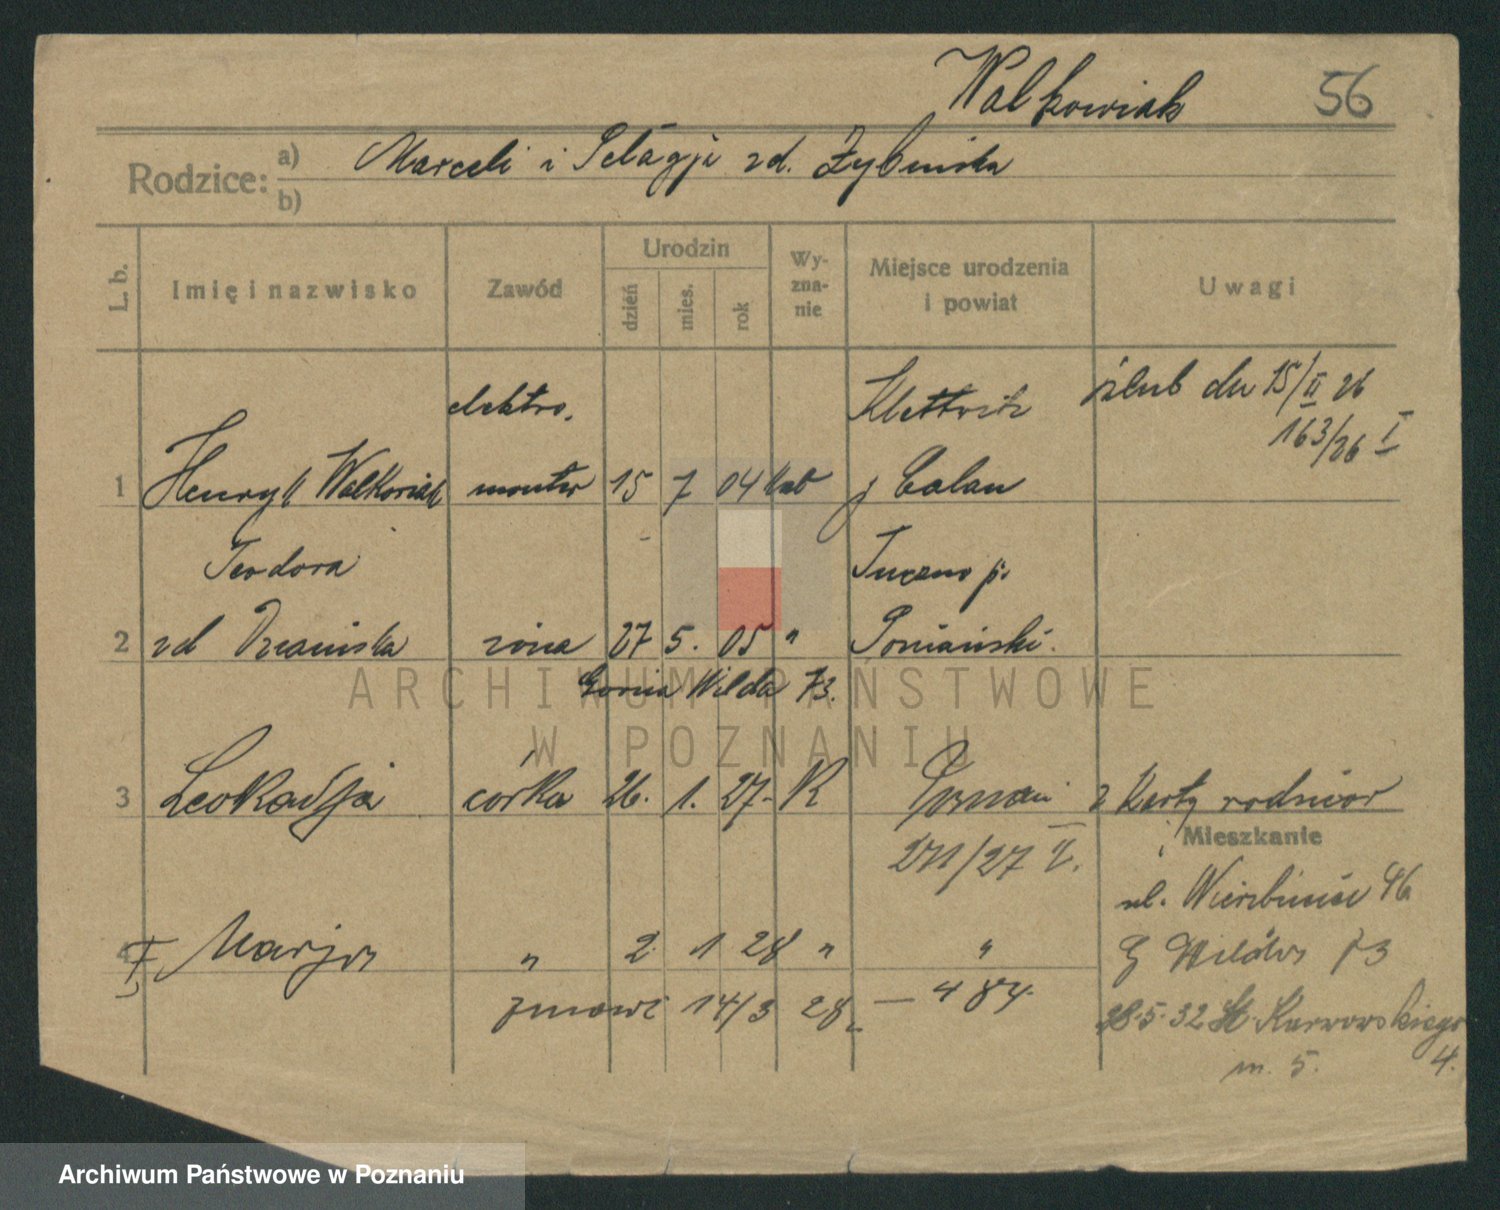 Walkowiak 56
Rodzice: a) Marceli i Pelagja zd. Żybińska
b)
L. b. Imię i nazwisko Zawód Urodzin dzień mies. rok Wyznanie Miejsce urodzenia i powiat Uwagi
elektro. Klettwitz ślub dn 15/II 26
163/26 I
1 Henryk Walkowiak monter 15 7 04 kat p Calau
Teodora Tuczno p.
2 zd żona 27 5. 05 " Poznański.
Górna Wilda 73.
3 Leokadja córka 26. 1. 27- K Poznań z karty rodziców
271/27 II. Mieszkanie
ul. Wierzbięcice 46
4 Marja " 2 1 28 " "
G Wilda 73
14/3 28 — 484.
28.5.32 Karwowskiego 4.
m. 5.
ARCHIWUM PAŃSTWOWE
W POZNANIU
Archiwum Państwowe w Poznaniu